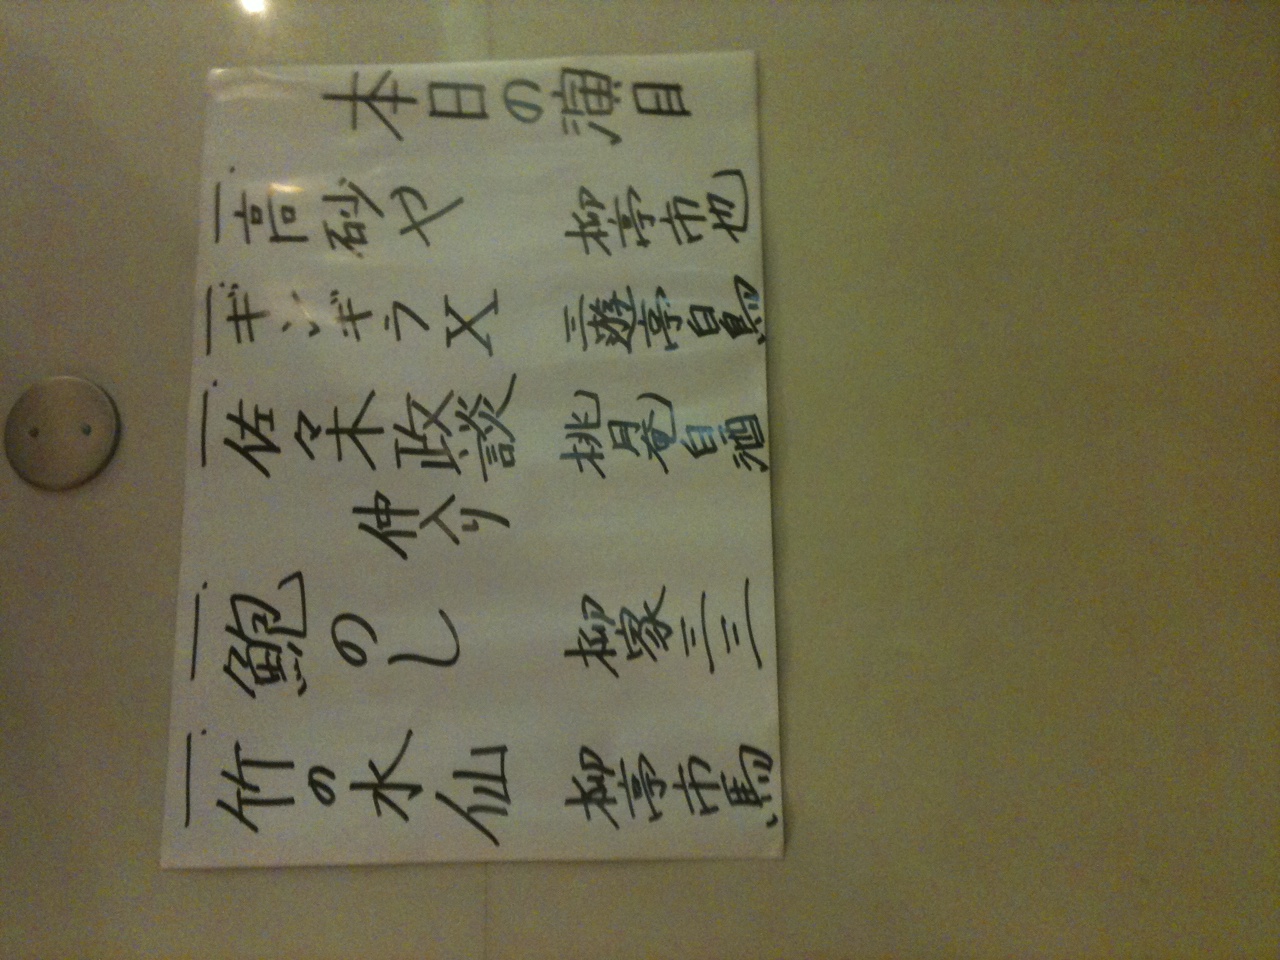 本日の演目
一、高砂や 柳亭市也
一、ギンギラX 三遊亭白鳥
一、佐々木政談 桃月庵白酒
仲入り
一、鮑のし 柳家三三
一、竹の水仙 柳亭市馬